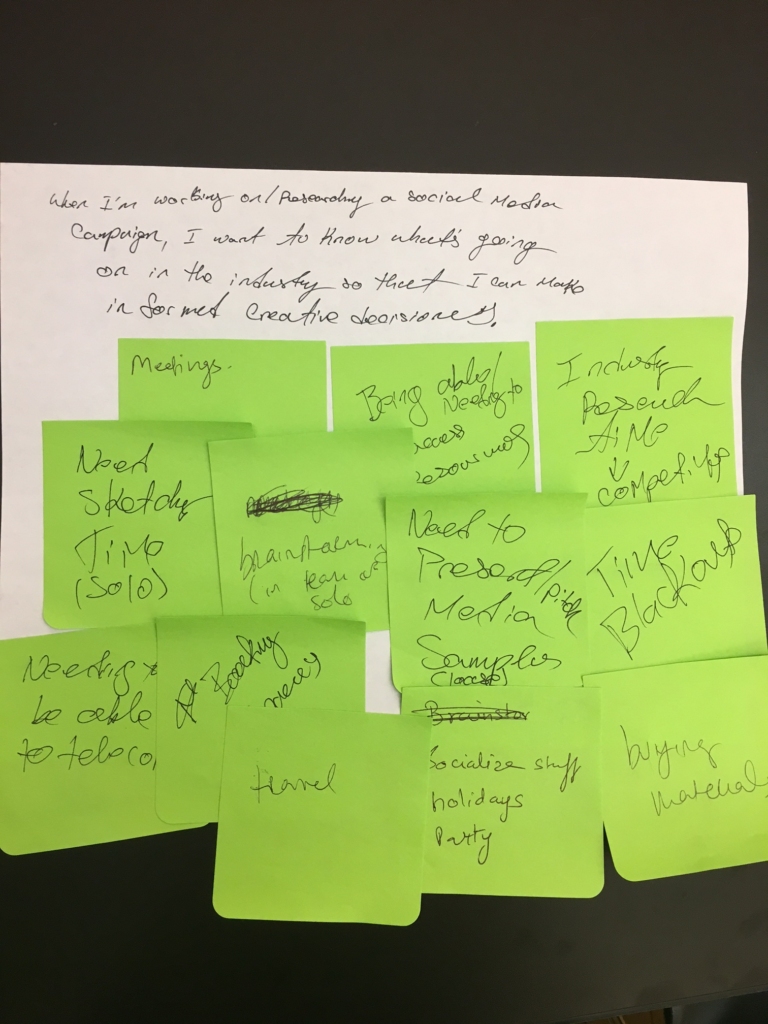 When I'm working on/Researching a social media
Campaign, I want to know what's going
on in the industry so that I can make
informed creative decisiones.
Meetings.
Being able/
Needing to
access
resources
Industry
Research
time
↓
competitive
Need
Sketchy
Time
(solo)
brainstorming
(in team or
solo
Need to
Present/Pitch
Media
Samples
Time
Blackouts
Needing to
be able
to teleco
Reading
travel
Brainstor
Socialize stuff
holidays
Party
buying
materials